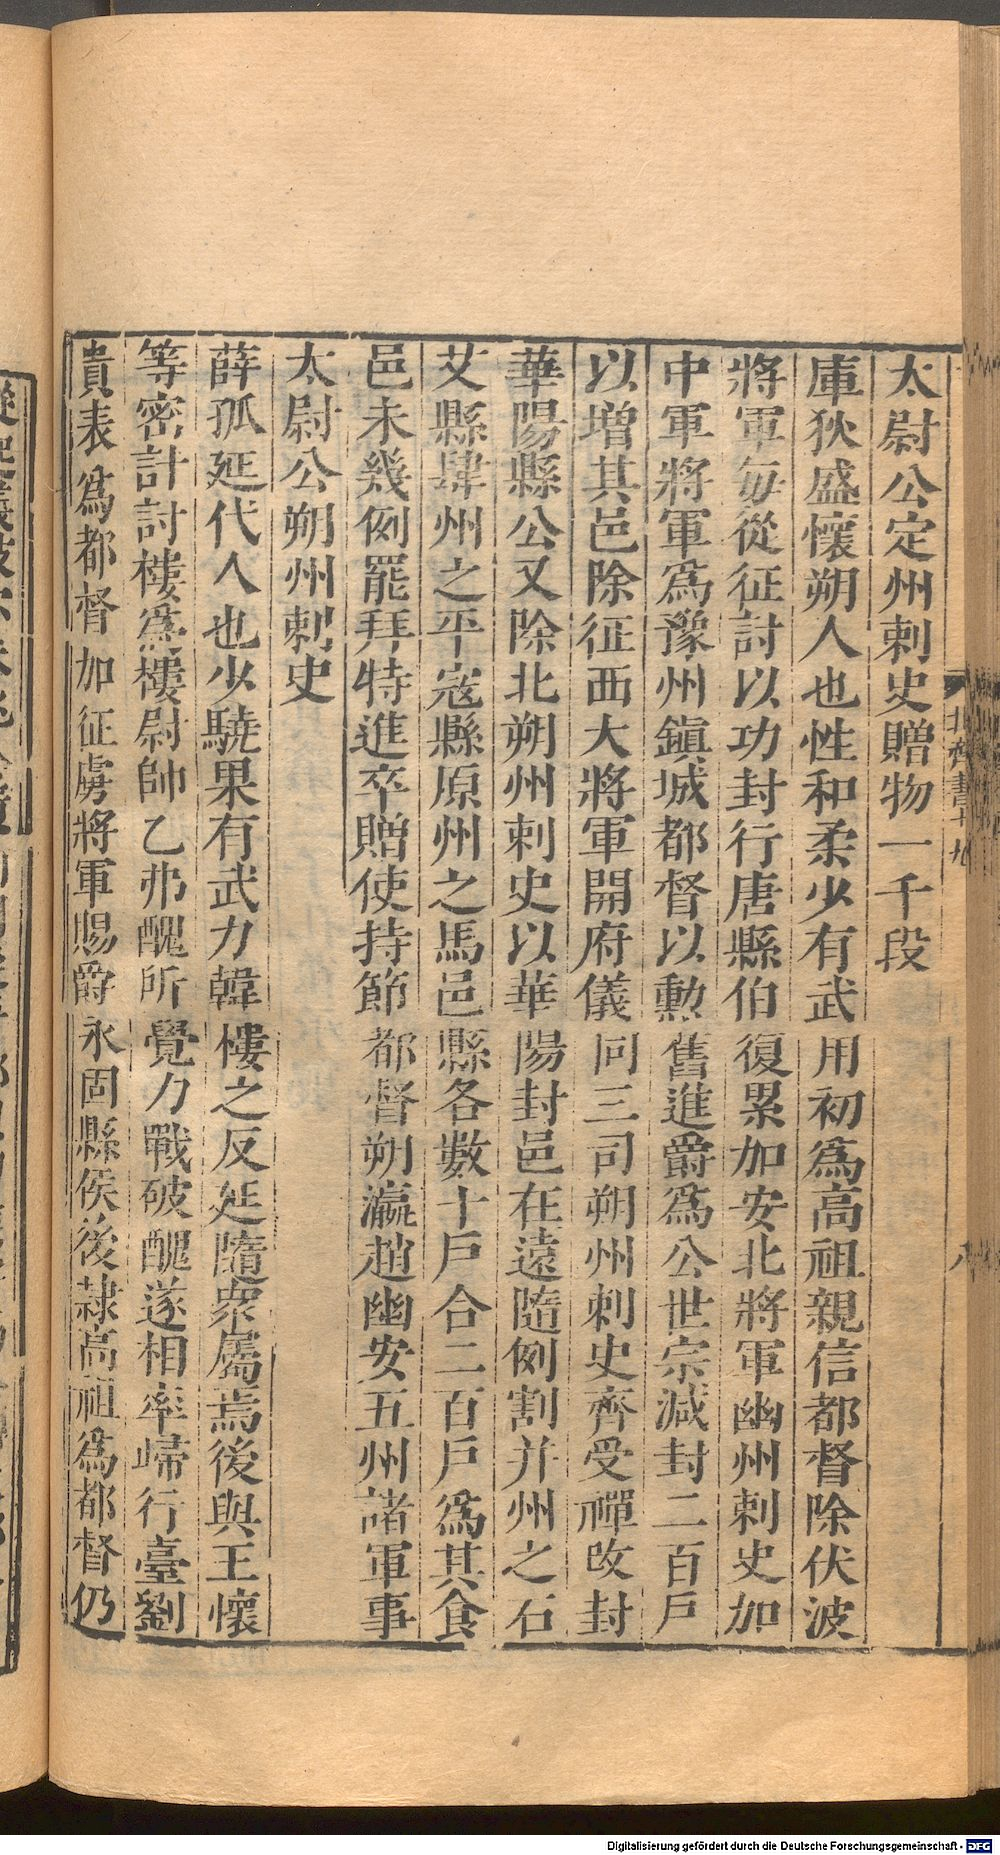 太尉公定州刺史贈物一千段
庫狄盛懷朔人也性和柔少有武用初爲高祖親信都督除伏波
將軍每從征討以功封行唐縣伯復累加安北將軍幽州刺史加
中軍將軍爲豫州鎮城都督以勳舊進爵爲公世宗減封二百戶
以增其邑除征西大將軍開府儀同三司朔州刺史齊受禪改封
華陽縣公又除北朔州刺史以華陽封邑在遠隨例割并州之石
艾縣肆州之平寇縣原州之馬邑縣各數十戶合二百戶爲其食
邑未幾例罷拜特進卒贈使持節都督朔瀛趙幽安五州諸軍事
太尉公朔州刺史
薛孤延代人也少驍果有武力韓樓之反延隨衆屬焉後與王懷
等密計討樓爲樓尉帥乙弗醜所覺力戰破醜遂相率歸行臺劉
貴表爲都督加征虜將軍賜爵永固縣侯後隷高祖爲都督仍
北齊書十九
八
Digitalisierung gefördert durch die Deutsche Forschungsgemeinschaft - DFG